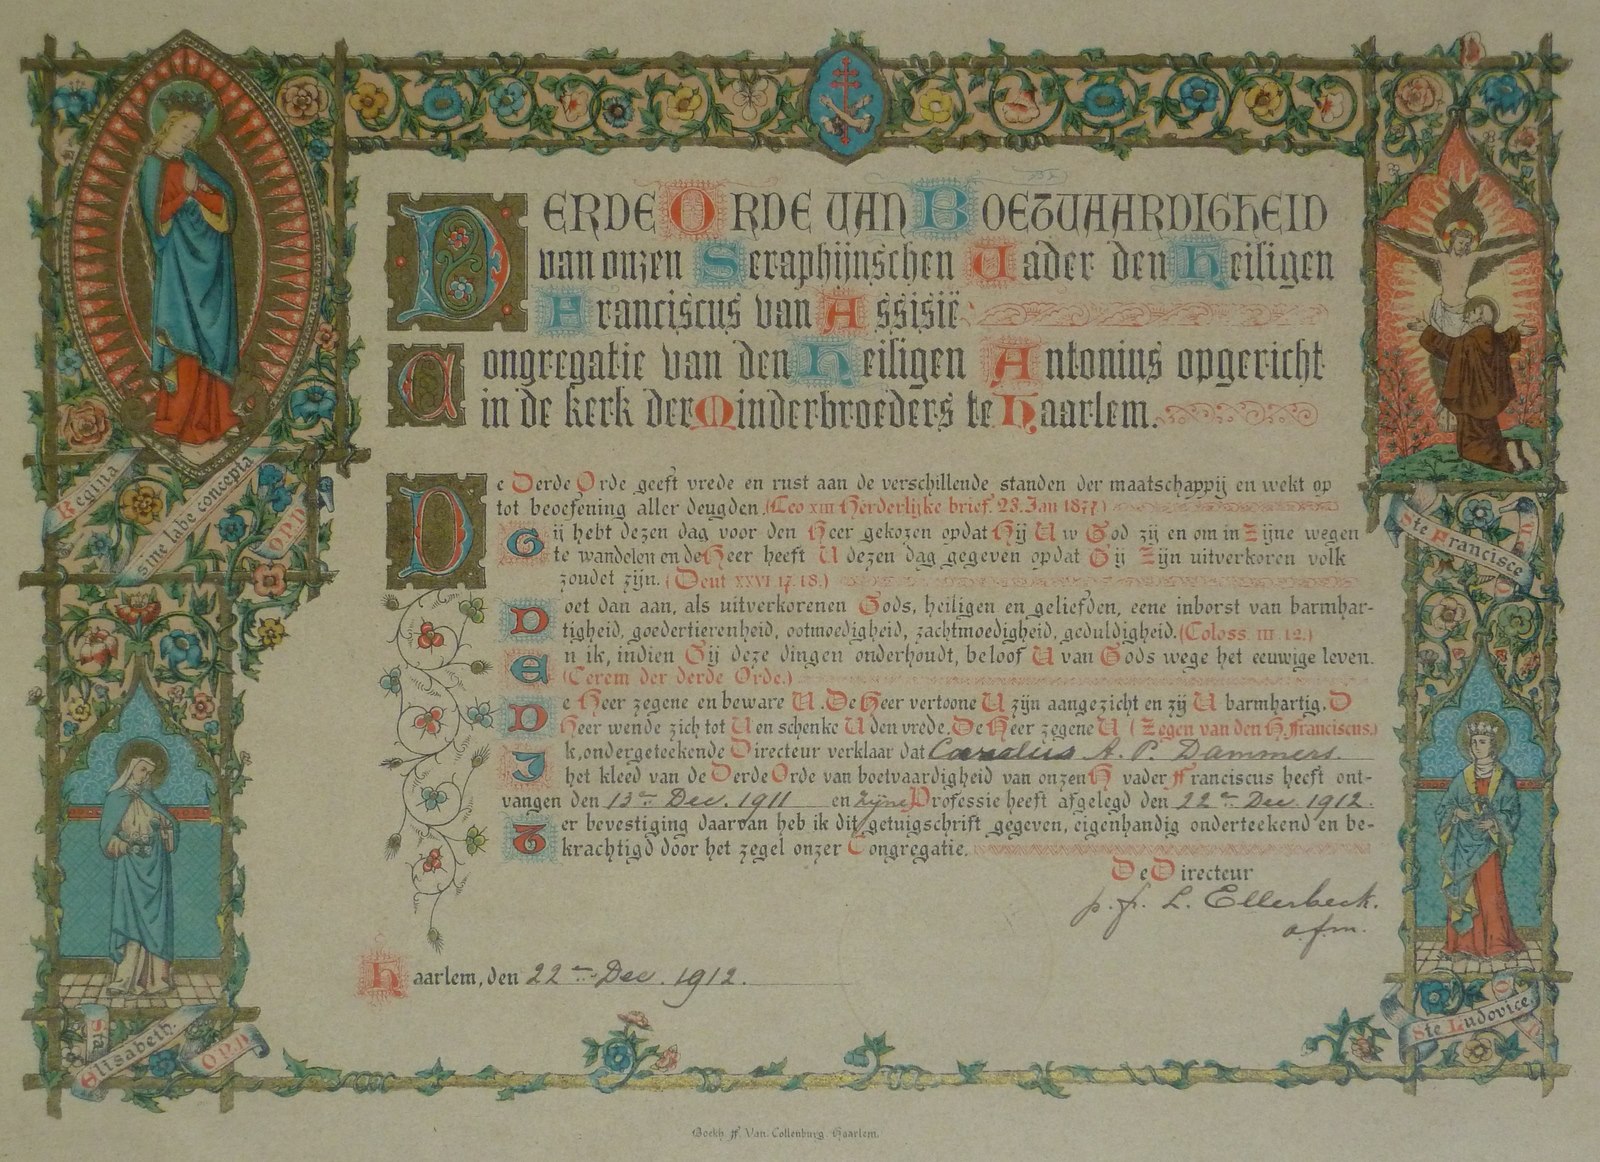 DERDE ORDE VAN BOETVAARDIGHEID
van onzen Seraphijnschen Vader den Heiligen
Franciscus van Assisië
Congregatie van den Heiligen Antonius opgericht
in de kerk der Minderbroeders te Haarlem.
De Derde Orde geeft vrede en rust aan de verschillende standen der maatschappij en wekt op
tot beoefening aller deugden. (Leo XIII Herderlijke brief. 23. Jan 1877)
Gij hebt dezen dag voor den Heer gekozen opdat Hij Uw God zij en om in Zijne wegen
te wandelen en de Heer heeft U dezen dag gegeven opdat Gij Zijn uitverkoren volk
zoudet zijn. (Deut XXVI 17. 18.)
Doet dan aan, als uitverkorenen Gods, heiligen en geliefden, eene inborst van barmhar-
tigheid, goedertierenheid, ootmoedigheid, zachtmoedigheid, geduldigheid. (Coloss. III. 12.)
En ik, indien Gij deze dingen onderhoudt, beloof U van Gods wege het eeuwige leven.
(Cerem der derde Orde.)
De Heer zegene en beware U. De Heer vertoone U zijn aangezicht en zij U barmhartig. D
Heer wende zich tot U en schenke U den vrede. De Heer zegene U (Zegen van den H. Franciscus.)
Ik, ondergeteekende Directeur verklaar dat Carolus A. P. Dammers.
het kleed van de Derde Orde van boetvaardigheid van onzen H vader Franciscus heeft ont-
vangen den 13en Dec. 1911 en zijne Professie heeft afgelegd den 22en Dec. 1912.
Ter bevestiging daarvan heb ik dit getuigschrift gegeven, eigenhandig onderteekend en be-
krachtigd door het zegel onzer Congregatie.
De Directeur
p. fr. L. Ellerbeck.
ofm.
Haarlem, den 22en Dec. 1912.
Regina
sine labe concepta
O.P.N
Ste Francisce
Sta
Elisabeth.
O.P.N
Ste Ludovice
Boekh. ff. Van. Collenburg. Haarlem.